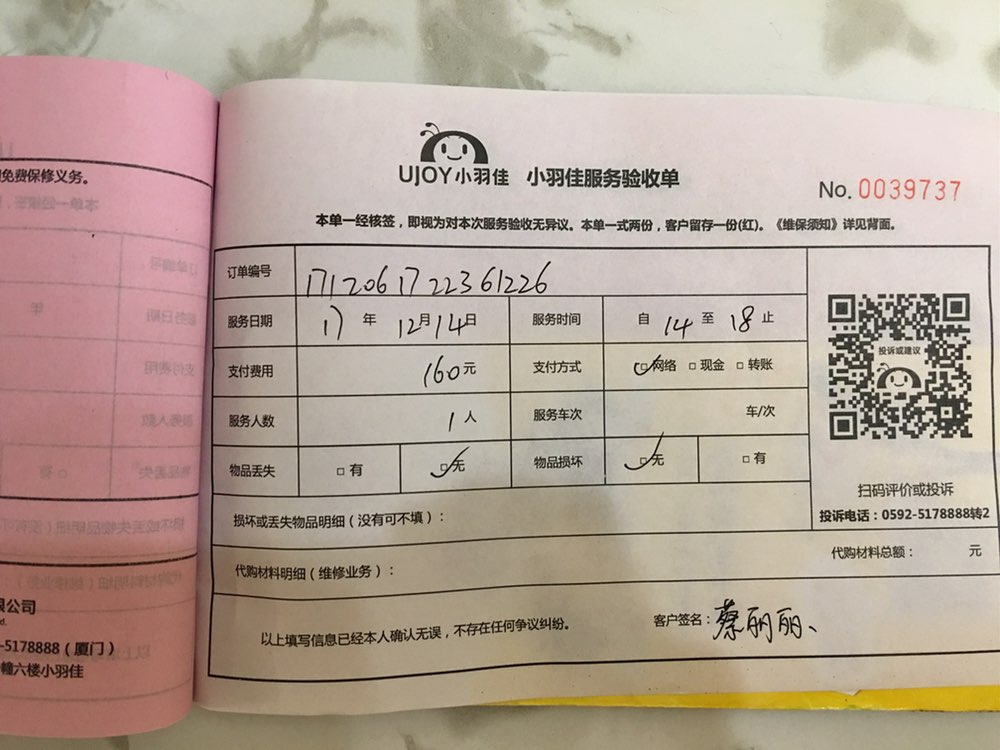 免费保修义务。
限公司
-5178888（厦门）
幢六楼小羽佳
UJOY小羽佳 小羽佳服务验收单
No. 0039737
本单一经核签，即视为对本次服务验收无异议。本单一式两份，客户留存一份(红)。《维保须知》详见背面。
订单编号 1712061722361226
服务日期 17年 12月14日 服务时间 自 14 至 18 止
支付费用 160元 支付方式 □网络 □现金 □转账
服务人数 1人 服务车次 车/次
物品丢失 □有 □无 物品损坏 □无 □有
投诉或建议
扫码评价或投诉
投诉电话：0592-5178888转2
损坏或丢失物品明细（没有可不填）：
代购材料明细（维修业务）： 代购材料总额： 元
以上填写信息已经本人确认无误，不存在任何争议纠纷。 客户签名：蔡丽丽、